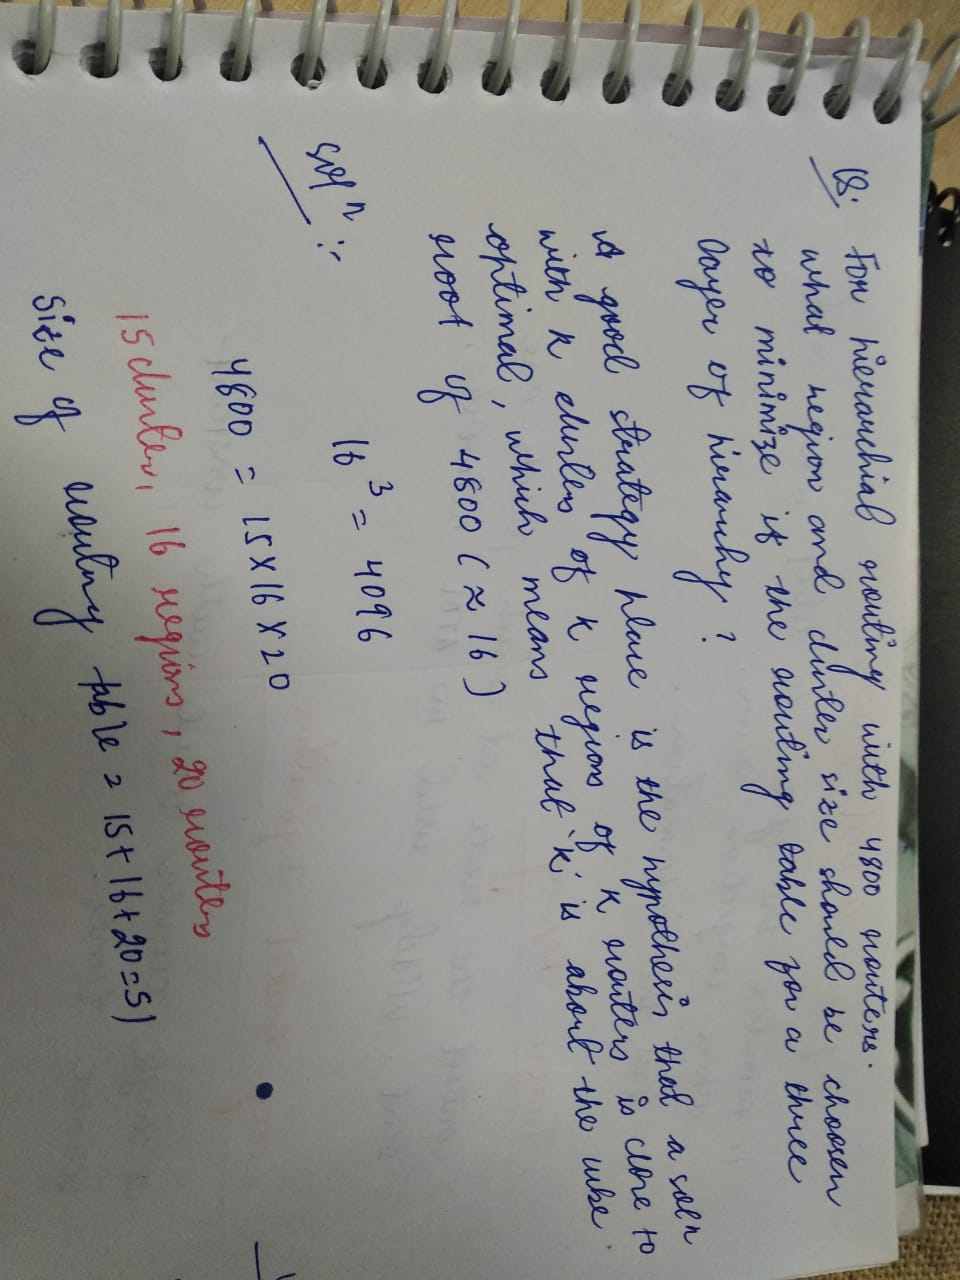 Q: For hierarchial routing with 4800 routers.
what region and cluster size should be choosen
to minimize if the routing table for a three
layer of hierarchy ?
A good strategy place is the hypothesis that a solⁿ
with k clusters of k regions of k routers is close to
optimal, which means that 'k' is about the cube
root of 4800 (≈ 16)
Solⁿ :- 16³ = 4096
4800 = 15 X 16 X 20
15 cluster, 16 regions, 20 routers
Size of routing table = 15 + 16 + 20 = 51